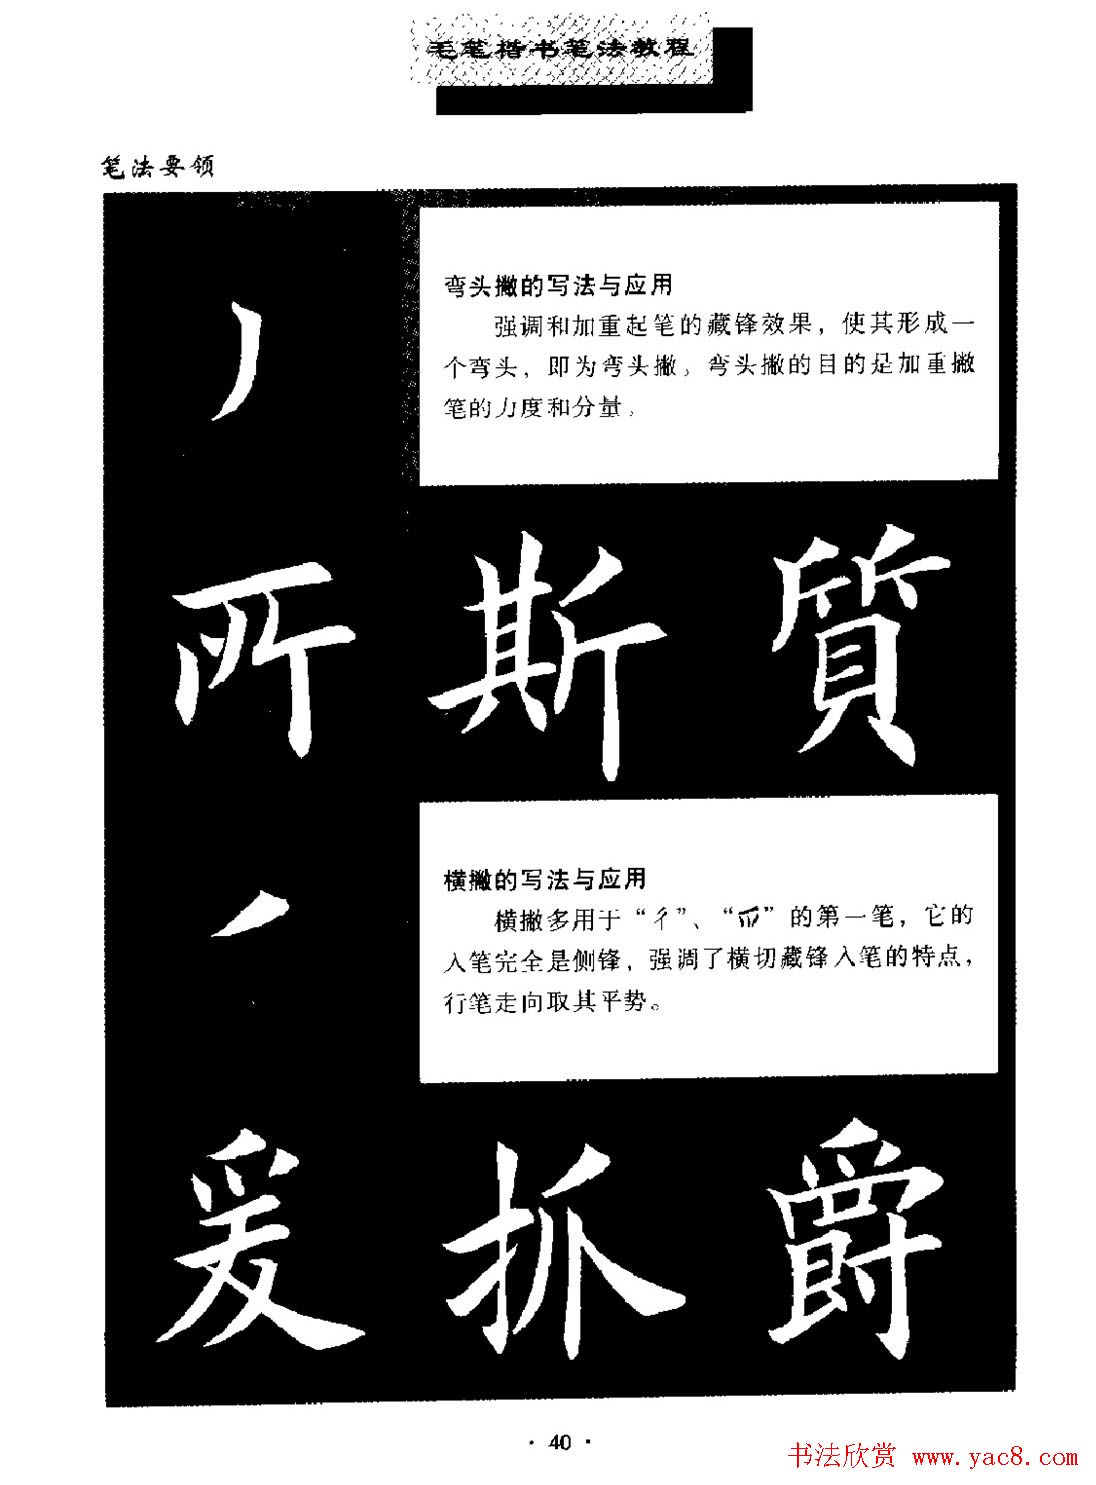 毛笔楷书笔法教程
笔法要领
弯头撇的写法与应用
强调和加重起笔的藏锋效果，使其形成一
个弯头，即为弯头撇。弯头撇的目的是加重撇
笔的力度和分量。
所 斯 質
横撇的写法与应用
横撇多用于“彳”、“爫”的第一笔，它的
入笔完全是侧锋，强调了横切藏锋入笔的特点，
行笔走向取其平势。
爰 抓 爵
· 40 ·
书法欣赏 www.yac8.com